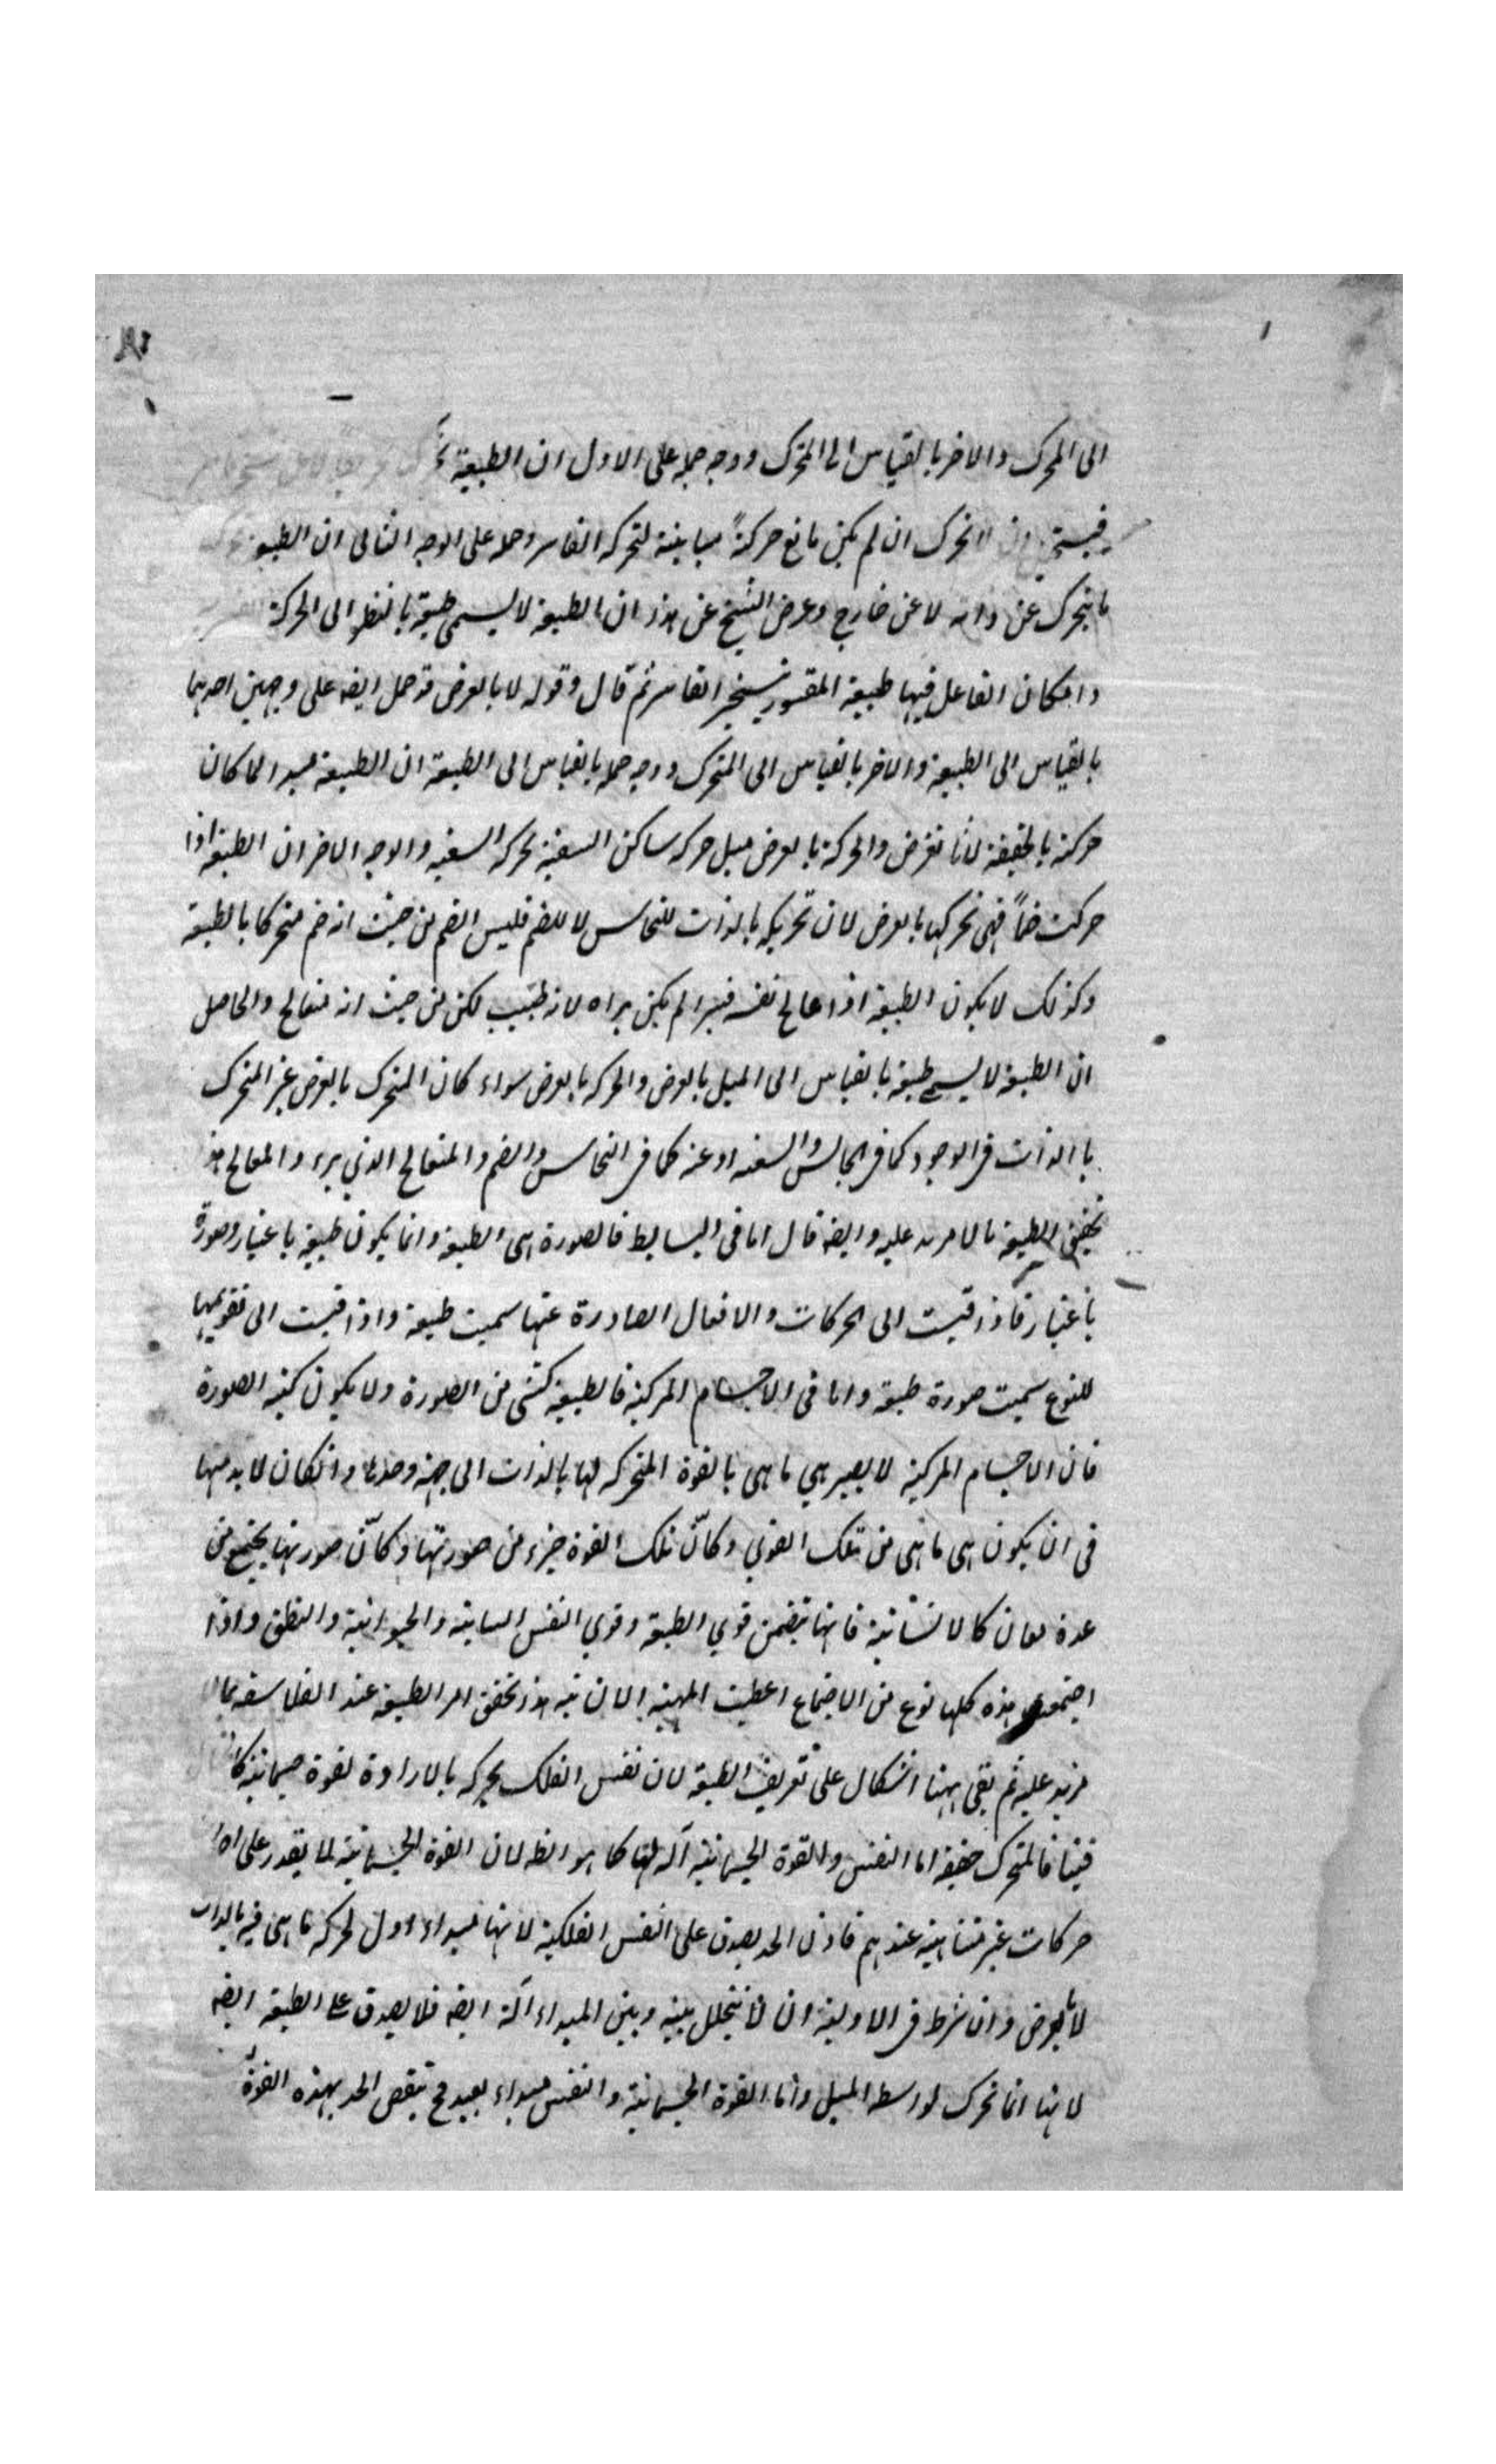 الى المحرك والاخر بالقياس الى المتحرك ووجه حمله على الاول ان الطبيعة
ان لا تحرك ان لم يكن مانع حركةً مباينة لتحركه القاسر وحمله على الوجه الثانى ان الطبيعة
ما يتحرك عن ذاته لا عن خارج وغرض الشيخ عن هذا ان الطبيعة لا يسمى طبيعة بالنظر الى الحركة
وامكان الفاعل فيها طبيعة المقسور بتسخير القاسر ثم قال وقوله لا بالعرض قد حمل ايضه على وجهين احدهما
بالقياس الى الطبيعة والاخر بالقياس الى المتحرك ووجه حمله بالقياس الى الطبيعة ان الطبيعة مبدا لما كان
حركته بالحقيقة لا بالعرض والحركة بالعرض مثل حركه ساكن السفينة بحركه السفينه والوجه الاخر ان الطبيعة اذا
حركت صنماً فهى تحركها بالعرض لان تحريكه بالذات للنحاس لا للصنم فليس الصنم من حيث انه صنم متحركا بالطبيعة
وكذلك لا يكون الطبيعة اذا عالج نفسه فبرا لم يكن براه لانه طبيب لكن من حيث انه متعالج والحاصل
ان الطبيعة لا يسمى طبيعة بالقياس الى الميل بالعرض والحركه بالعرض سواء كان المتحرك بالعرض غير المتحرك
بالذات فى الوجود كما فى الجالس والسفينه او عنه كما فى النحاس والصنم والمتعالج الذي برء والمعالج هذا
تحقيق الطبيعة بما لا مزيد عليه وايضه قال اما فى البسايط فالصورة هى الطبيعة وانما يكون طبيعة باعتبار وصورة
باعتبار فاذا قيست الى الحركات والافعال الصادرة عنها سميت طبيعة واذا قيست الى تقويمها
للنوع سميت صورة طبيعة واما فى الاجسام المركبة فالطبيعة كشى من الصورة ولا يكون كنه الصورة
فان الاجسام المركبة لا يصير هي ما هى بالقوة المتحركه لها بالذات الى جهة وحدها وانكان لا بد منها
فى ان يكون هى ما هى من تلك القوي وكانّ تلك القوة جزء من صورتها وكانّ صورتها يجتمع من
عدة معان كالانسانية فانها يتضمن قوي الطبيعة وقوي النفس النباتية والحيوانية والنطق واذا
اجتمعت هذه كلها نوع من الاجتماع اعطيت المهية الانسانية هذا تحقق امر الطبيعة عند الفلاسفه بما لا
مزيد عليه ثم بقى ههنا اشكال على تعريف الطبيعة لان نفس الفلك يحركه بالارادة لقوة جسمانية كما
فينا فالمتحرك حقيقه اما النفس والقوة الجسمانية آله لها كما هو الظ لان القوة الجسمانية لا يقدر على
حركات غير متناهية عندهم فاذن الحد يصدق على النفس الفلكية لانها مبداء اول لحركه ما هى فيه بالذات
لا بالعرض وان شرط فى الاولية ان لا يتخلل بينه وبين المبداء آلة ايضه فلا يصدق على الطبيعة ايضه
لانها انما تحرك بواسطه الميل واما القوة الجسمانية والنفس مبداء بعيد فح ينقض الحد بهذه القوة